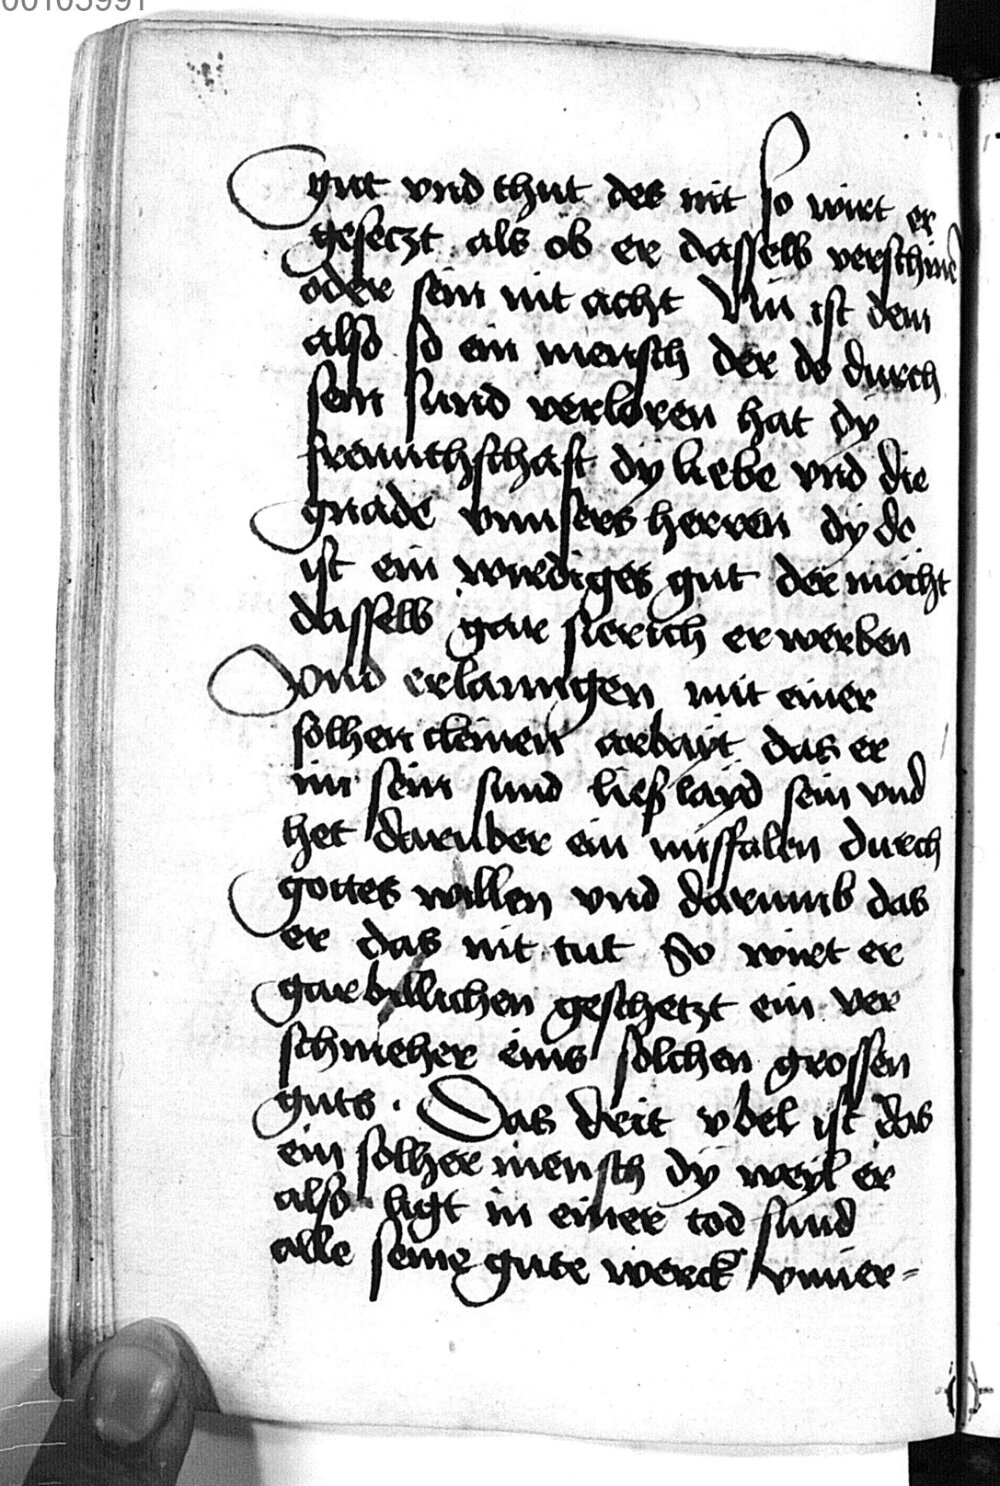 00103991
gut vnd thut des nit so wirt er
geseczt als ob er dasselb verschme
oder sein nit acht Nun ist dem
also so ein mensch der do durch
sein sund verloren hat dy
freuntschaft dy liebe vnd die
gnade vnnsers herren dy do
ist ein wirdiges gut der mocht
dasselb gar erwerben
vnd erlanngen mit einer
solhen cleinen arbayt das er
im sein sund ließ layd sein vnd
het daruber ein missfalen durch
gottes willen vnd darumb das
er das nit tut So wirt er
gar billichen geschetzt ein ver
schmeher eins solchen grossen
guts. Das drit vbel ist das
ein solher mensch dy weyl er
also ligt in einer tod sund
alle seine gute werck vnuer=